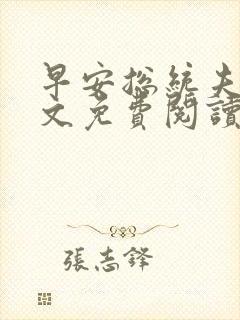 早安總統夫
文免費閱讀
張志鋒